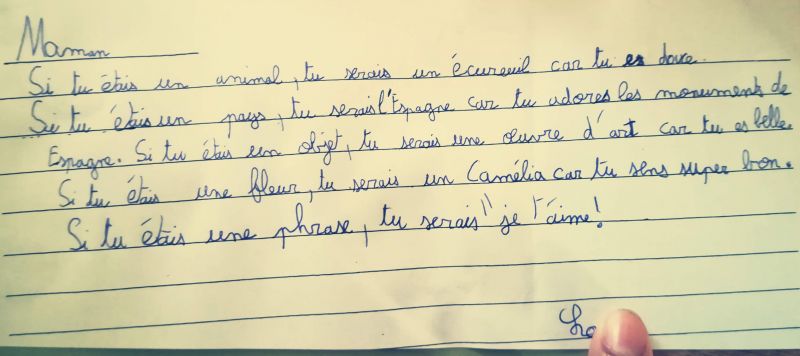 Maman
Si tu étais un animal, tu serais un écureuil car tu es douce.
Si tu étais un pays, tu serais l'Espagne car tu adores les monuments de
Espagne. Si tu étais un objet, tu serais une œuvre d'art car tu es belle.
Si tu étais une fleur, tu serais un Camélia car tu sens super bon.
Si tu étais une phrase, tu serais " je t'aime!